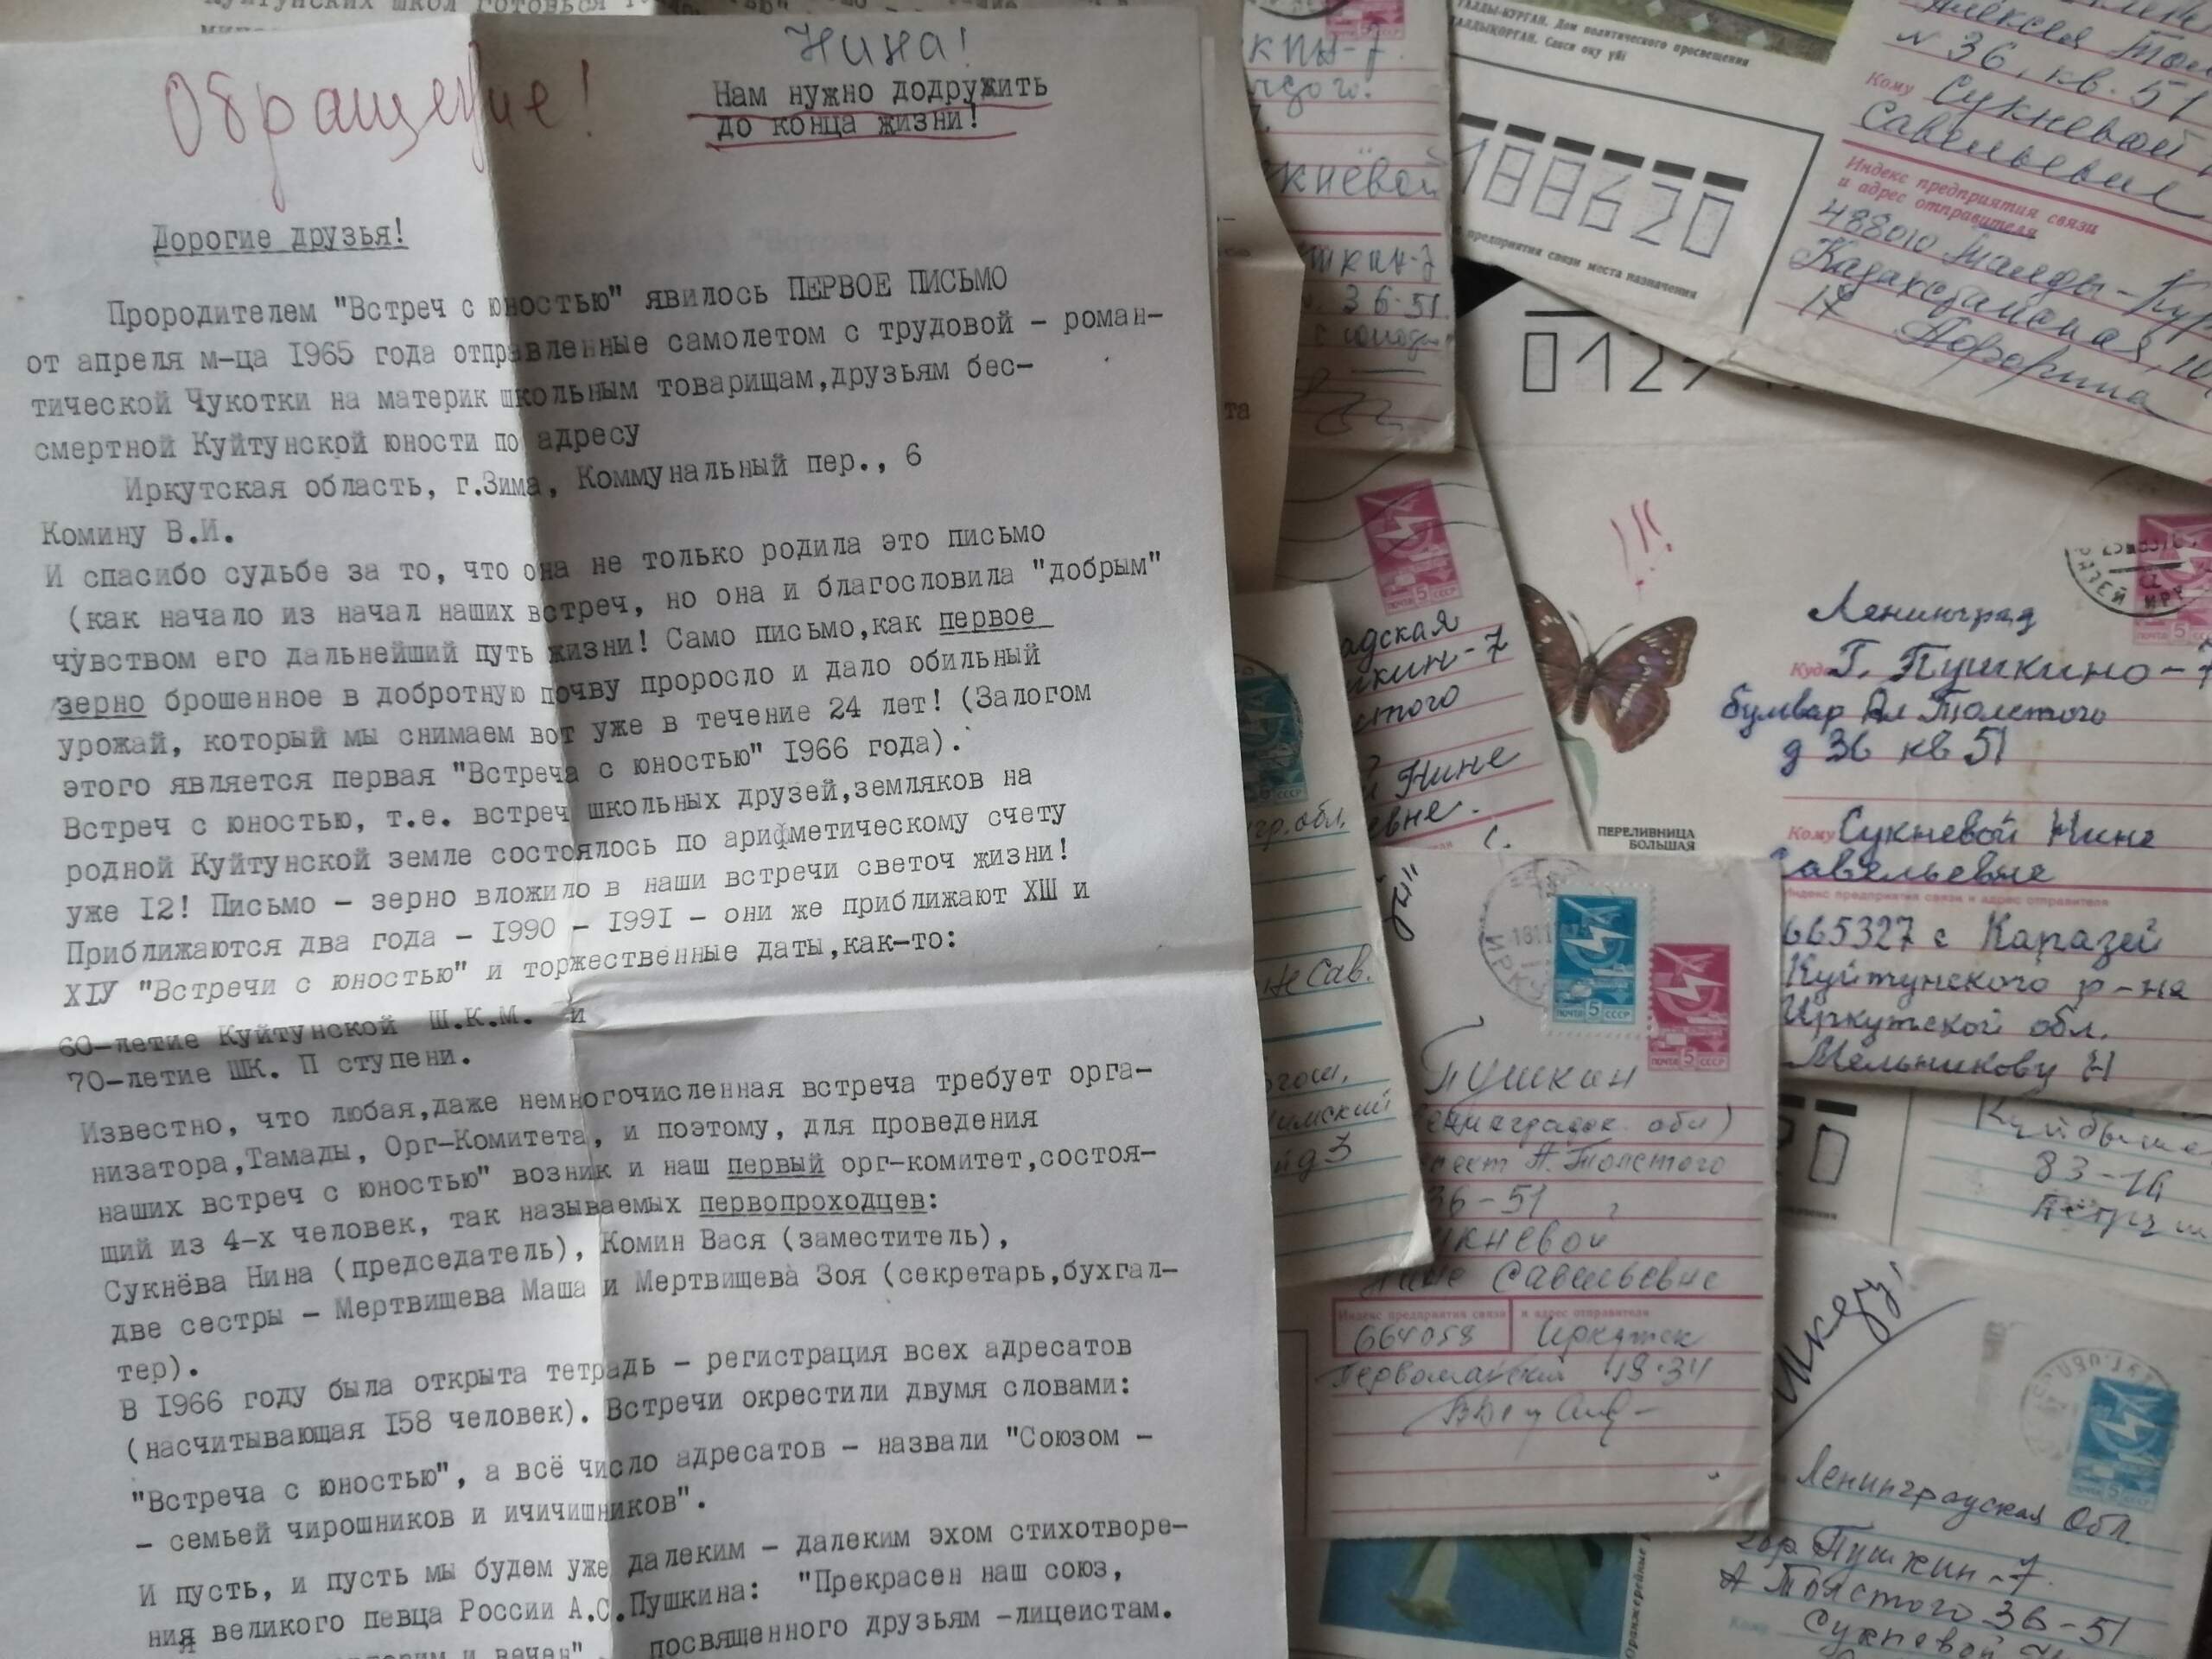 Обращение!
Нина!
Нам нужно додружить
до конца жизни!
Дорогие друзья!
Прородителем "Встреч с юностью" явилось ПЕРВОЕ ПИСЬМО
от апреля м-ца I965 года отправленные самолетом с трудовой - роман-
тической Чукотки на материк школьным товарищам,друзьям бес-
смертной Куйтунской юности по адресу
Иркутская область, г.Зима, Коммунальный пер., 6
Комину В.И.
И спасибо судьбе за то, что она не только родила это письмо
(как начало из начал наших встреч, но она и благословила "добрым"
чувством его дальнейший путь жизни! Само письмо,как первое
зерно брошенное в добротную почву проросло и дало обильный
урожай, который мы снимаем вот уже в течение 24 лет! (Залогом
этого является первая "Встреча с юностью" I966 года).
Встреч с юностью, т.е. встреч школьных друзей,земляков на
родной Куйтунской земле состоялось по арифметическому счету
уже I2! Письмо - зерно вложило в наши встречи светоч жизни!
Приближаются два года - I990 - I99I - они же приближают ХШ и
ХIУ "Встречи с юностью" и торжественные даты,как-то:
60-летие Куйтунской Ш.К.М. и
70-летие ШК. П ступени.
Известно, что любая,даже немногочисленная встреча требует орга-
низатора,Тамады, Орг-Комитета, и поэтому, для проведения
наших встреч с юностью" возник и наш первый орг-комитет,состоя-
щий из 4-х человек, так называемых первопроходцев:
Сукнёва Нина (председатель), Комин Вася (заместитель),
две сестры - Мертвищева Маша и Мертвищева Зоя (секретарь,бухгал-
тер).
В I966 году была открыта тетрадь - регистрация всех адресатов
(насчитывающая I58 человек). Встречи окрестили двумя словами:
"Встреча с юностью", а всё число адресатов - назвали "Союзом -
- семьей чирошников и ичичишников".
И пусть, и пусть мы будем уже далеким - далеким эхом стихотворе-
ния великого певца России А.С.Пушкина: "Прекрасен наш союз,
и вечен" посвященного друзьям -лицеистам.
ТАЛДЫ-КУРГАН. Дом политического просвещения
ТАЛДЫКОРГАН. Саяси оқу үйі
188620
предприятия связи места назначения
N 36, кв. 51
Кому Сукневой
Савельевне
Индекс предприятия связи
и адрес отправителя
488010 Талды-Кур
Казахстанская
кнёвой
36-51
012
ПОЧТА 5 СССР
адская
кин-7
стого
Нине
евне.
!!!
Ленинград
Куда Г. Пушкино-7
бульвар Ал Толстого
д 36 кв 51
Кому Сукневой Нине
Савельевне
Индекс предприятия связи и адрес отправителя
665327 с Каразей
Куйтунского р-на
Иркутской обл.
Мельникову Н
ПЕРЕЛИВНИЦА
БОЛЬШАЯ
гр.обл.
не Сав.
ПОЧТА 5 СССР
ПОЧТА 5 СССР
Пушкин
36-51
кневой
Нине Савельевне
Индекс предприятия связи и адрес отправителя
664058 Иркутск
Первомайский 19-34
83-14
ПОЧТА 5 СССР
Ленинградская Обл.
гор. Пушкин-7.
А Толстого 36-51
Сукневой
Кому
Оранжерейные